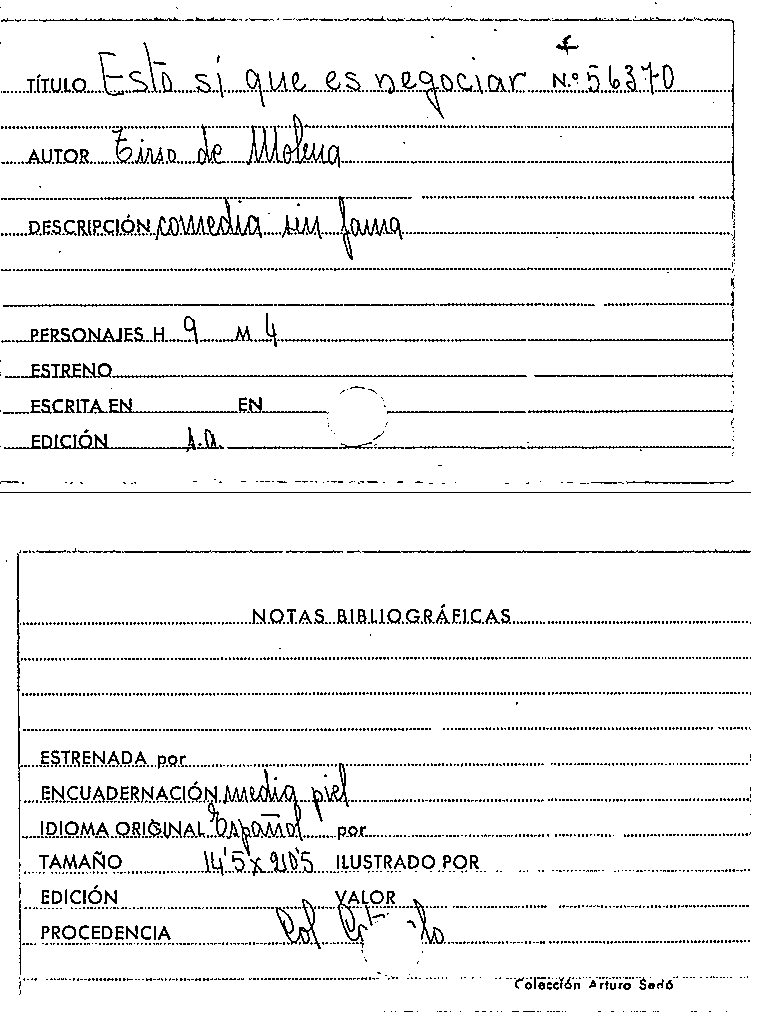 TÍTULO Esto sí que es negociar N.º 56370
AUTOR Tirso de Molina
DESCRIPCIÓN comedia sin fama
PERSONAJES H 9 M 4
ESTRENO
ESCRITA EN EN
EDICIÓN s.a.
NOTAS BIBLIOGRÁFICAS
ESTRENADA por
ENCUADERNACIÓN media piel
IDIOMA ORIGINAL Español por
TAMAÑO 14'5 x 20'5 ILUSTRADO POR
EDICIÓN VALOR
PROCEDENCIA Col
Colección Arturo Sedó